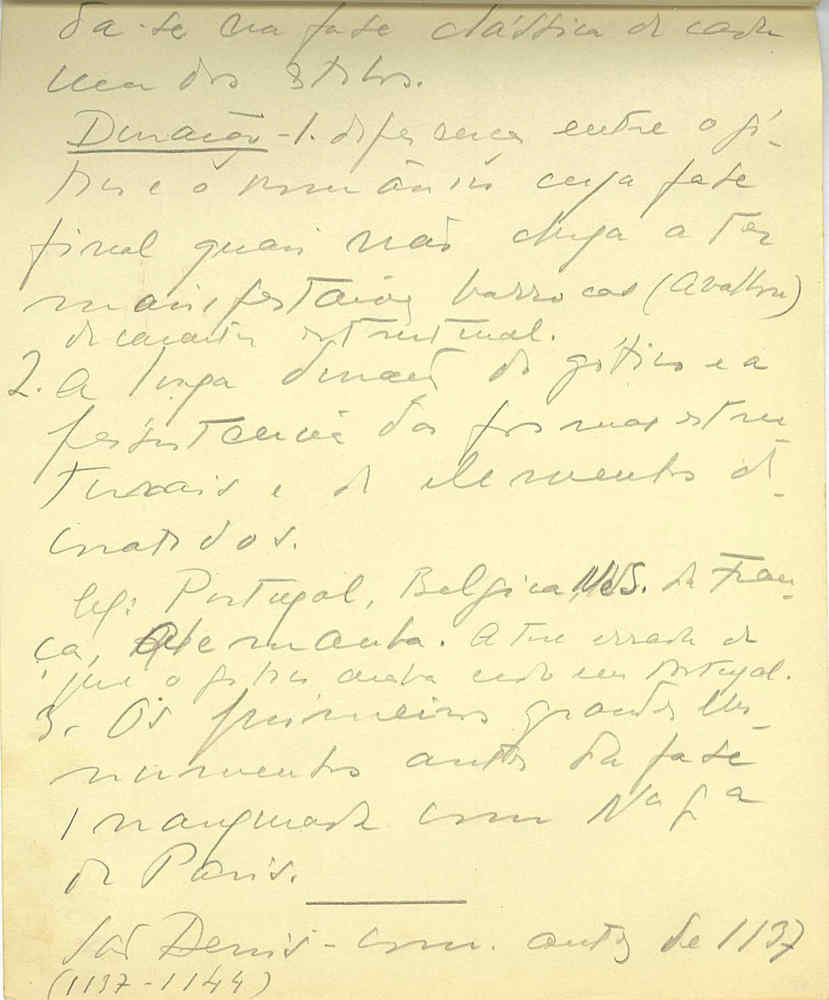 da-se na fase clássica de cada
um dos estilos.
Duração - 1. diferença entre o gó-
tico e o românico cuja fase
final quasi não chega a ter
manifestações barrocas (Avallon)
de caracter estrutural.
2. A longa duração do gótico e a
persistencia das formas estru
turais e de elementos
Portugal, Belgica, da Fran-
ça, Alemanha. A tese errada de
que o gótico acaba cedo em Portugal.
3. Os primeiros grandes mo-
numentos antes da fase
inaugurada com Na Sa
de Paris.
São Denis - com. antes de 1137
(1137-1144)